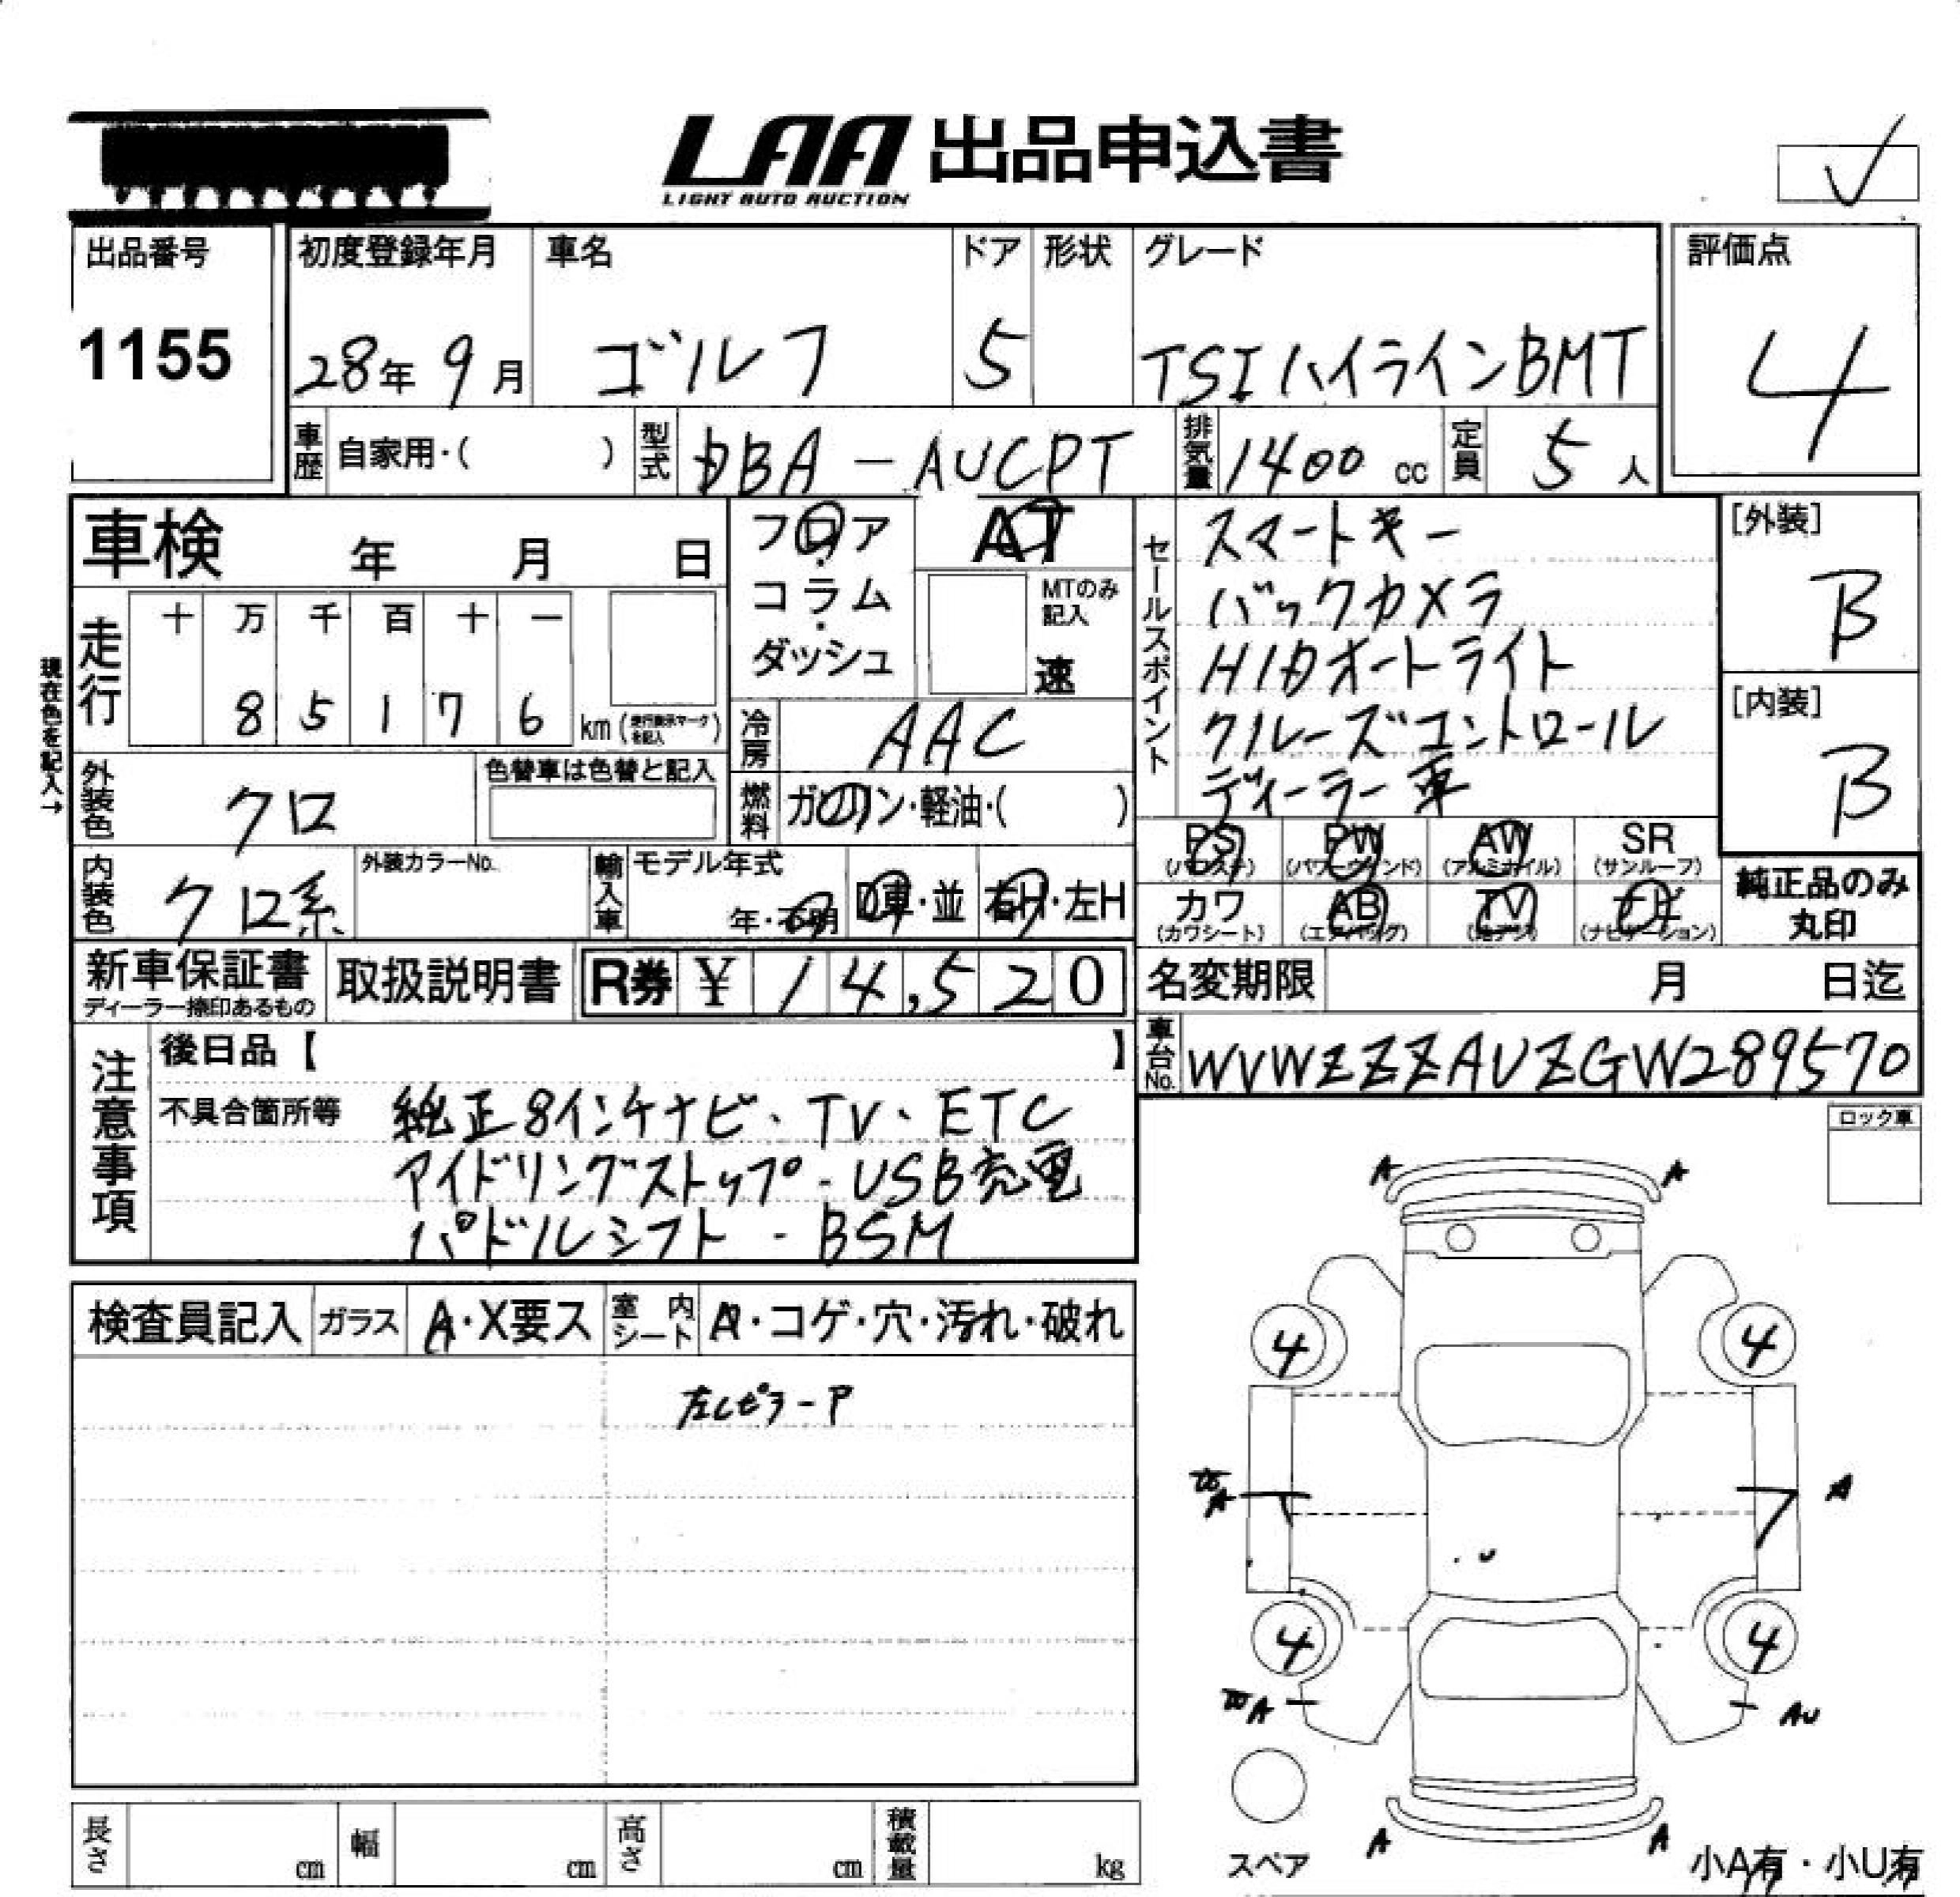 LAA 出品申込書
LIGHT AUTO AUCTION
出品番号 初度登録年月 車名 ドア 形状 グレード 評価点
1155 28年 9月 ゴルフ 5 TSIハイラインBMT 4
車歴 自家用・( ) 型式 DBA-AUCPT 排気量 1400 cc 定員 5 人
車検 年 月 日
フロア・コラム・ダッシュ
AT
MTのみ記入
速
セールスポイント
スマートキー
バックカメラ
HIDオートライト
クルーズコントロール
ディーラー車
[外装]
B
[内装]
B
現在色を記入→
走行 十 万 千 百 十 一
8 5 1 7 6 km (走行表示マークを記入)
冷房 AAC
外装色 クロ 色替車は色替と記入
燃料 ガソリン・軽油・( )
PS (パワステ) PW (パワーウィンド) AW (アルミホイル) SR (サンルーフ)
内装色 クロ系 外装カラーNo. 輸入車 モデル年式 年・不明 D車・並 右H・左H
カワ (カワシート) AB (エアバッグ) TV (地デジ) ナビ (ナビゲーション)
純正品のみ
丸印
新車保証書 取扱説明書 R券 ¥ 14,520 名変期限 月 日迄
ディーラー捺印あるもの
車台No. WVWZZZAUZGW289570
注意事項
後日品【 】
不具合箇所等 純正8インチナビ・TV・ETC
アイドリングストップ・USB充電
パドルシフト・BSM
ロック車
検査員記入 ガラス A・X要ス 室内シート A・コゲ・穴・汚れ・破れ
A A
4 4
A A
U
4 4
A AU
A A
スペア
小A有・小U有
長さ cm 幅 cm 高さ cm 積載量 kg